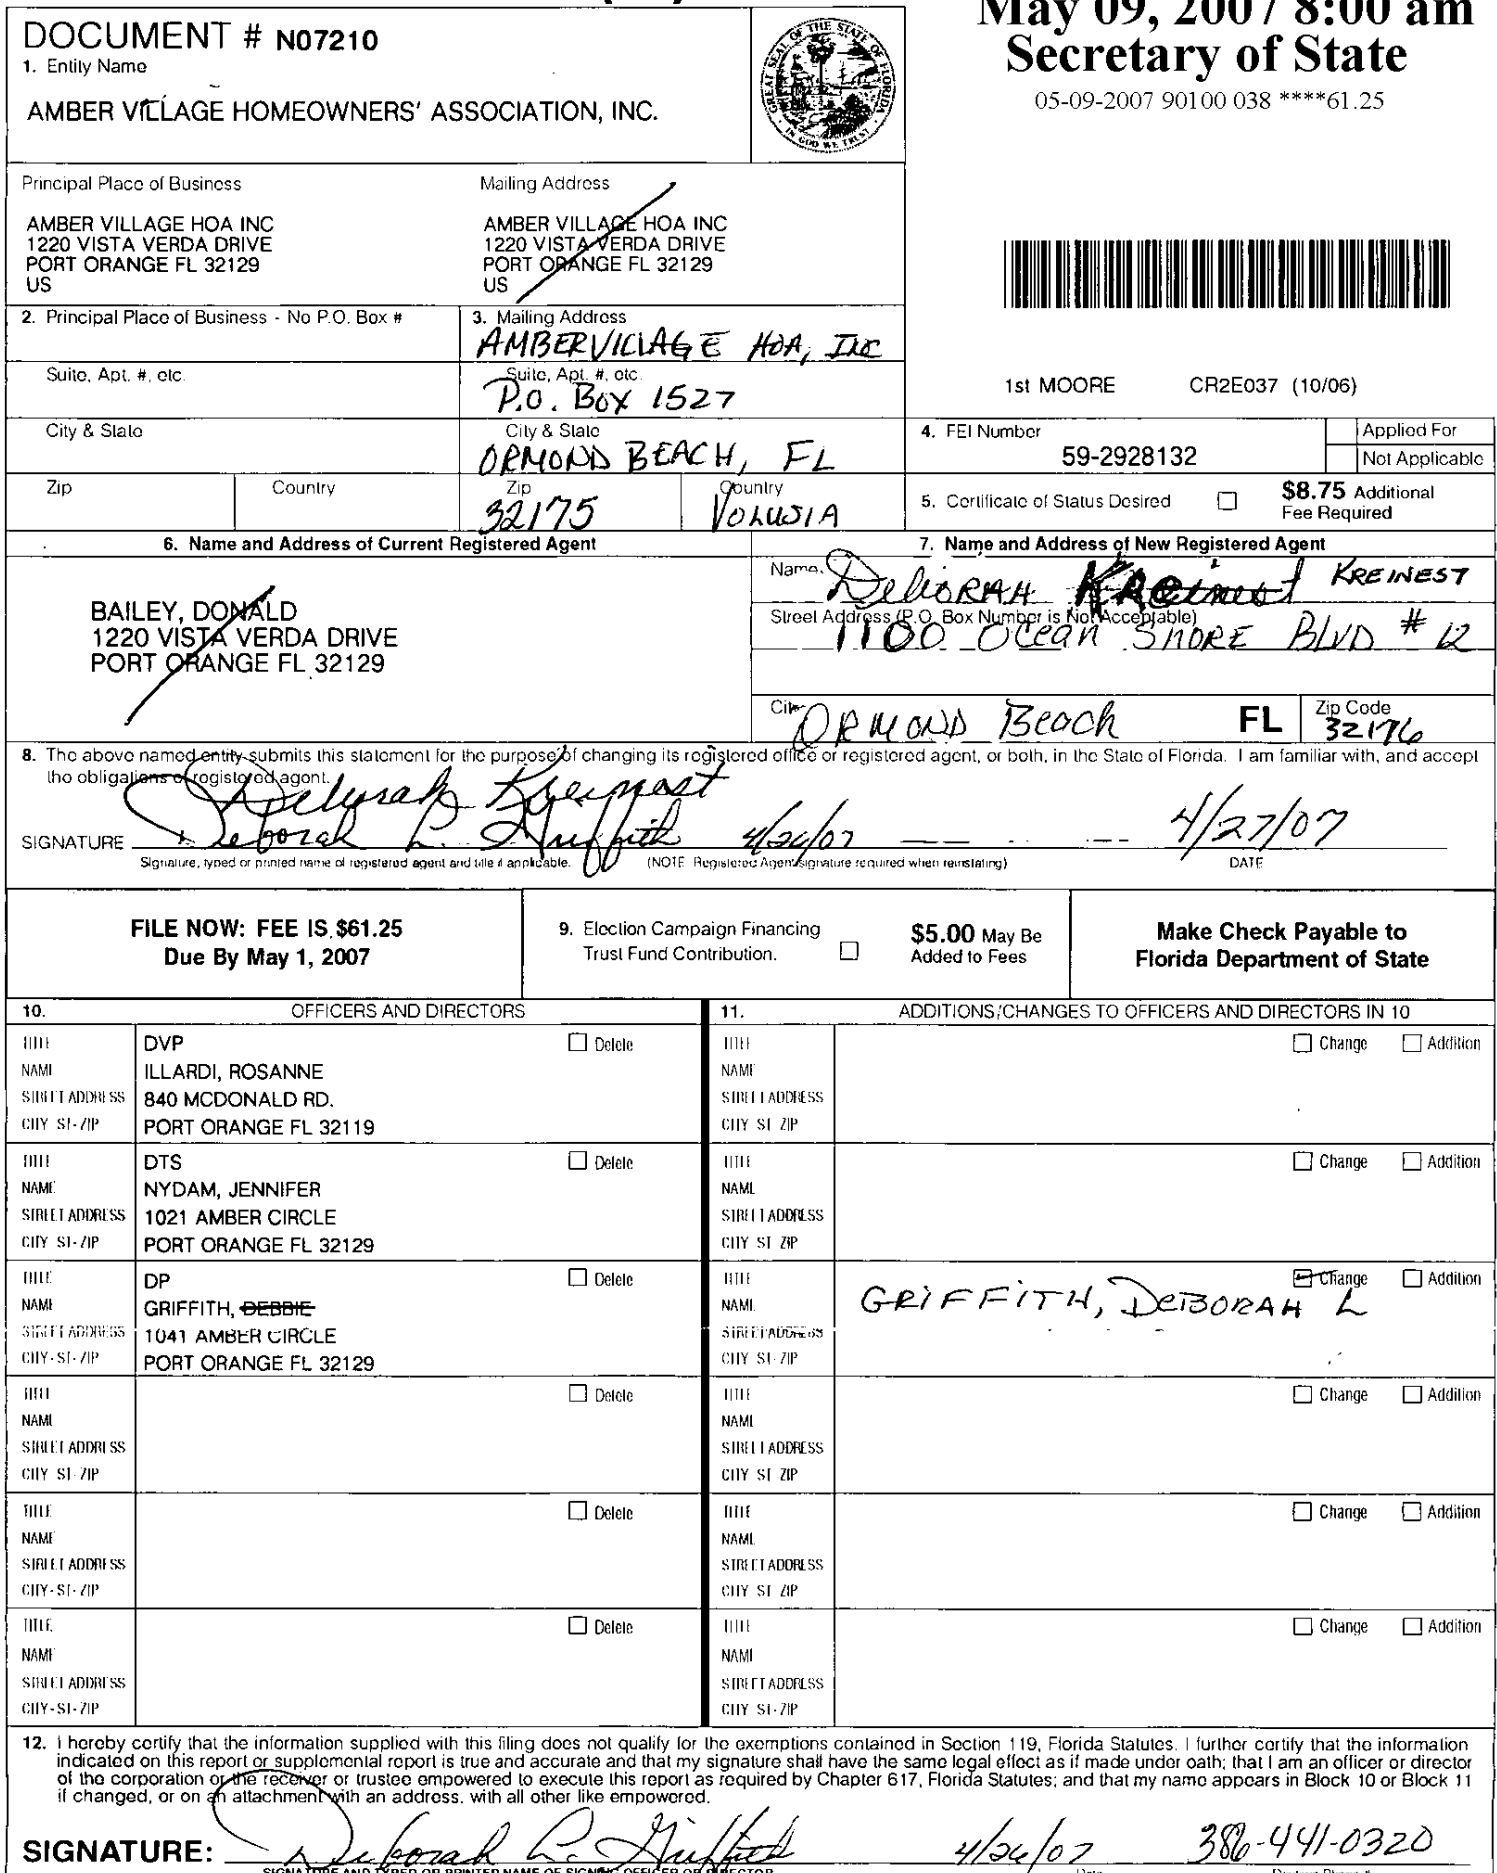 May 09, 2007 8:00 am
Secretary of State
05-09-2007 90100 038 ****61.25
DOCUMENT # N07210
1. Entity Name
AMBER VILLAGE HOMEOWNERS' ASSOCIATION, INC.
GREAT SEAL OF THE STATE OF FLORIDA
IN GOD WE TRUST
Principal Place of Business
AMBER VILLAGE HOA INC
1220 VISTA VERDA DRIVE
PORT ORANGE FL 32129
US
Mailing Address
AMBER VILLAGE HOA INC
1220 VISTA VERDA DRIVE
PORT ORANGE FL 32129
US
2. Principal Place of Business - No P.O. Box #
3. Mailing Address
AMBERVILLAGE HOA, INC
Suite, Apt. #, etc.
Suite, Apt. #, etc.
P.O. Box 1527
1st MOORE CR2E037 (10/06)
City & State
City & State
ORMOND BEACH, FL
4. FEI Number
59-2928132
Applied For
Not Applicable
Zip
Country
Zip
32175
Country
VOLUSIA
5. Certificate of Status Desired
$8.75 Additional
Fee Required
6. Name and Address of Current Registered Agent
BAILEY, DONALD
1220 VISTA VERDA DRIVE
PORT ORANGE FL 32129
7. Name and Address of New Registered Agent
Name
DEBORAH Kreinest KREINEST
Street Address (P.O. Box Number is Not Acceptable)
1100 Ocean SHORE BLVD # 12
City
ORMOND Beach
FL
Zip Code
32176
8. The above named entity submits this statement for the purpose of changing its registered office or registered agent, or both, in the State of Florida. I am familiar with, and accept
the obligations of registered agent.
Deborah Kreinest
SIGNATURE Deborah L. Griffith 4/26/07 4/27/07
Signature, typed or printed name of registered agent and title if applicable. (NOTE Registered Agent signature required when reinstating) DATE
FILE NOW: FEE IS $61.25
Due By May 1, 2007
9. Election Campaign Financing
Trust Fund Contribution.
$5.00 May Be
Added to Fees
Make Check Payable to
Florida Department of State
10. OFFICERS AND DIRECTORS
11. ADDITIONS/CHANGES TO OFFICERS AND DIRECTORS IN 10
TITLE DVP Delete
NAME ILLARDI, ROSANNE
STREET ADDRESS 840 MCDONALD RD.
CITY ST-ZIP PORT ORANGE FL 32119
TITLE Change Addition
NAME
STREET ADDRESS
CITY ST ZIP
TITLE DTS Delete
NAME NYDAM, JENNIFER
STREET ADDRESS 1021 AMBER CIRCLE
CITY ST-ZIP PORT ORANGE FL 32129
TITLE Change Addition
NAME
STREET ADDRESS
CITY ST ZIP
TITLE DP Delete
NAME GRIFFITH, DEBBIE
STREET ADDRESS 1041 AMBER CIRCLE
CITY-ST-ZIP PORT ORANGE FL 32129
TITLE Change Addition
NAME GRIFFITH, DEBORAH L
STREET ADDRESS
CITY ST-ZIP
TITLE Delete
NAME
STREET ADDRESS
CITY ST-ZIP
TITLE Change Addition
NAME
STREET ADDRESS
CITY ST ZIP
TITLE Delete
NAME
STREET ADDRESS
CITY-ST-ZIP
TITLE Change Addition
NAME
STREET ADDRESS
CITY ST ZIP
TITLE Delete
NAME
STREET ADDRESS
CITY-ST-ZIP
TITLE Change Addition
NAME
STREET ADDRESS
CITY ST-ZIP
12. I hereby certify that the information supplied with this filing does not qualify for the exemptions contained in Section 119, Florida Statutes. I further certify that the information
indicated on this report or supplemental report is true and accurate and that my signature shall have the same legal effect as if made under oath; that I am an officer or director
of the corporation or the receiver or trustee empowered to execute this report as required by Chapter 617, Florida Statutes; and that my name appears in Block 10 or Block 11
if changed, or on an attachment with an address, with all other like empowered.
SIGNATURE: Deborah L. Griffith 4/26/07 386-441-0320
SIGNATURE AND TYPED OR PRINTED NAME OF SIGNING OFFICER OR DIRECTOR